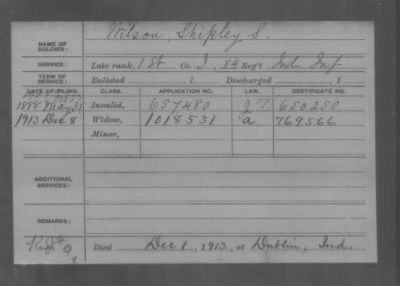 NAME OF SOLDIER: Wilson, Shipley S.
SERVICE: Late rank, 1 St Co. I, 84 Reg't Ind. Inf
TERM OF SERVICE: Enlisted 1 Discharged , 1
DATE OF FILING. CLASS. APPLICATION NO. LAW. CERTIFICATE NO.
1888 May 31 Invalid, 657480 650250
1913 Dec 8 Widow, 1018531 a 769566
Minor,
ADDITIONAL SERVICES:
REMARKS:
Died Dec 1, 1913, at Dublin, Ind.